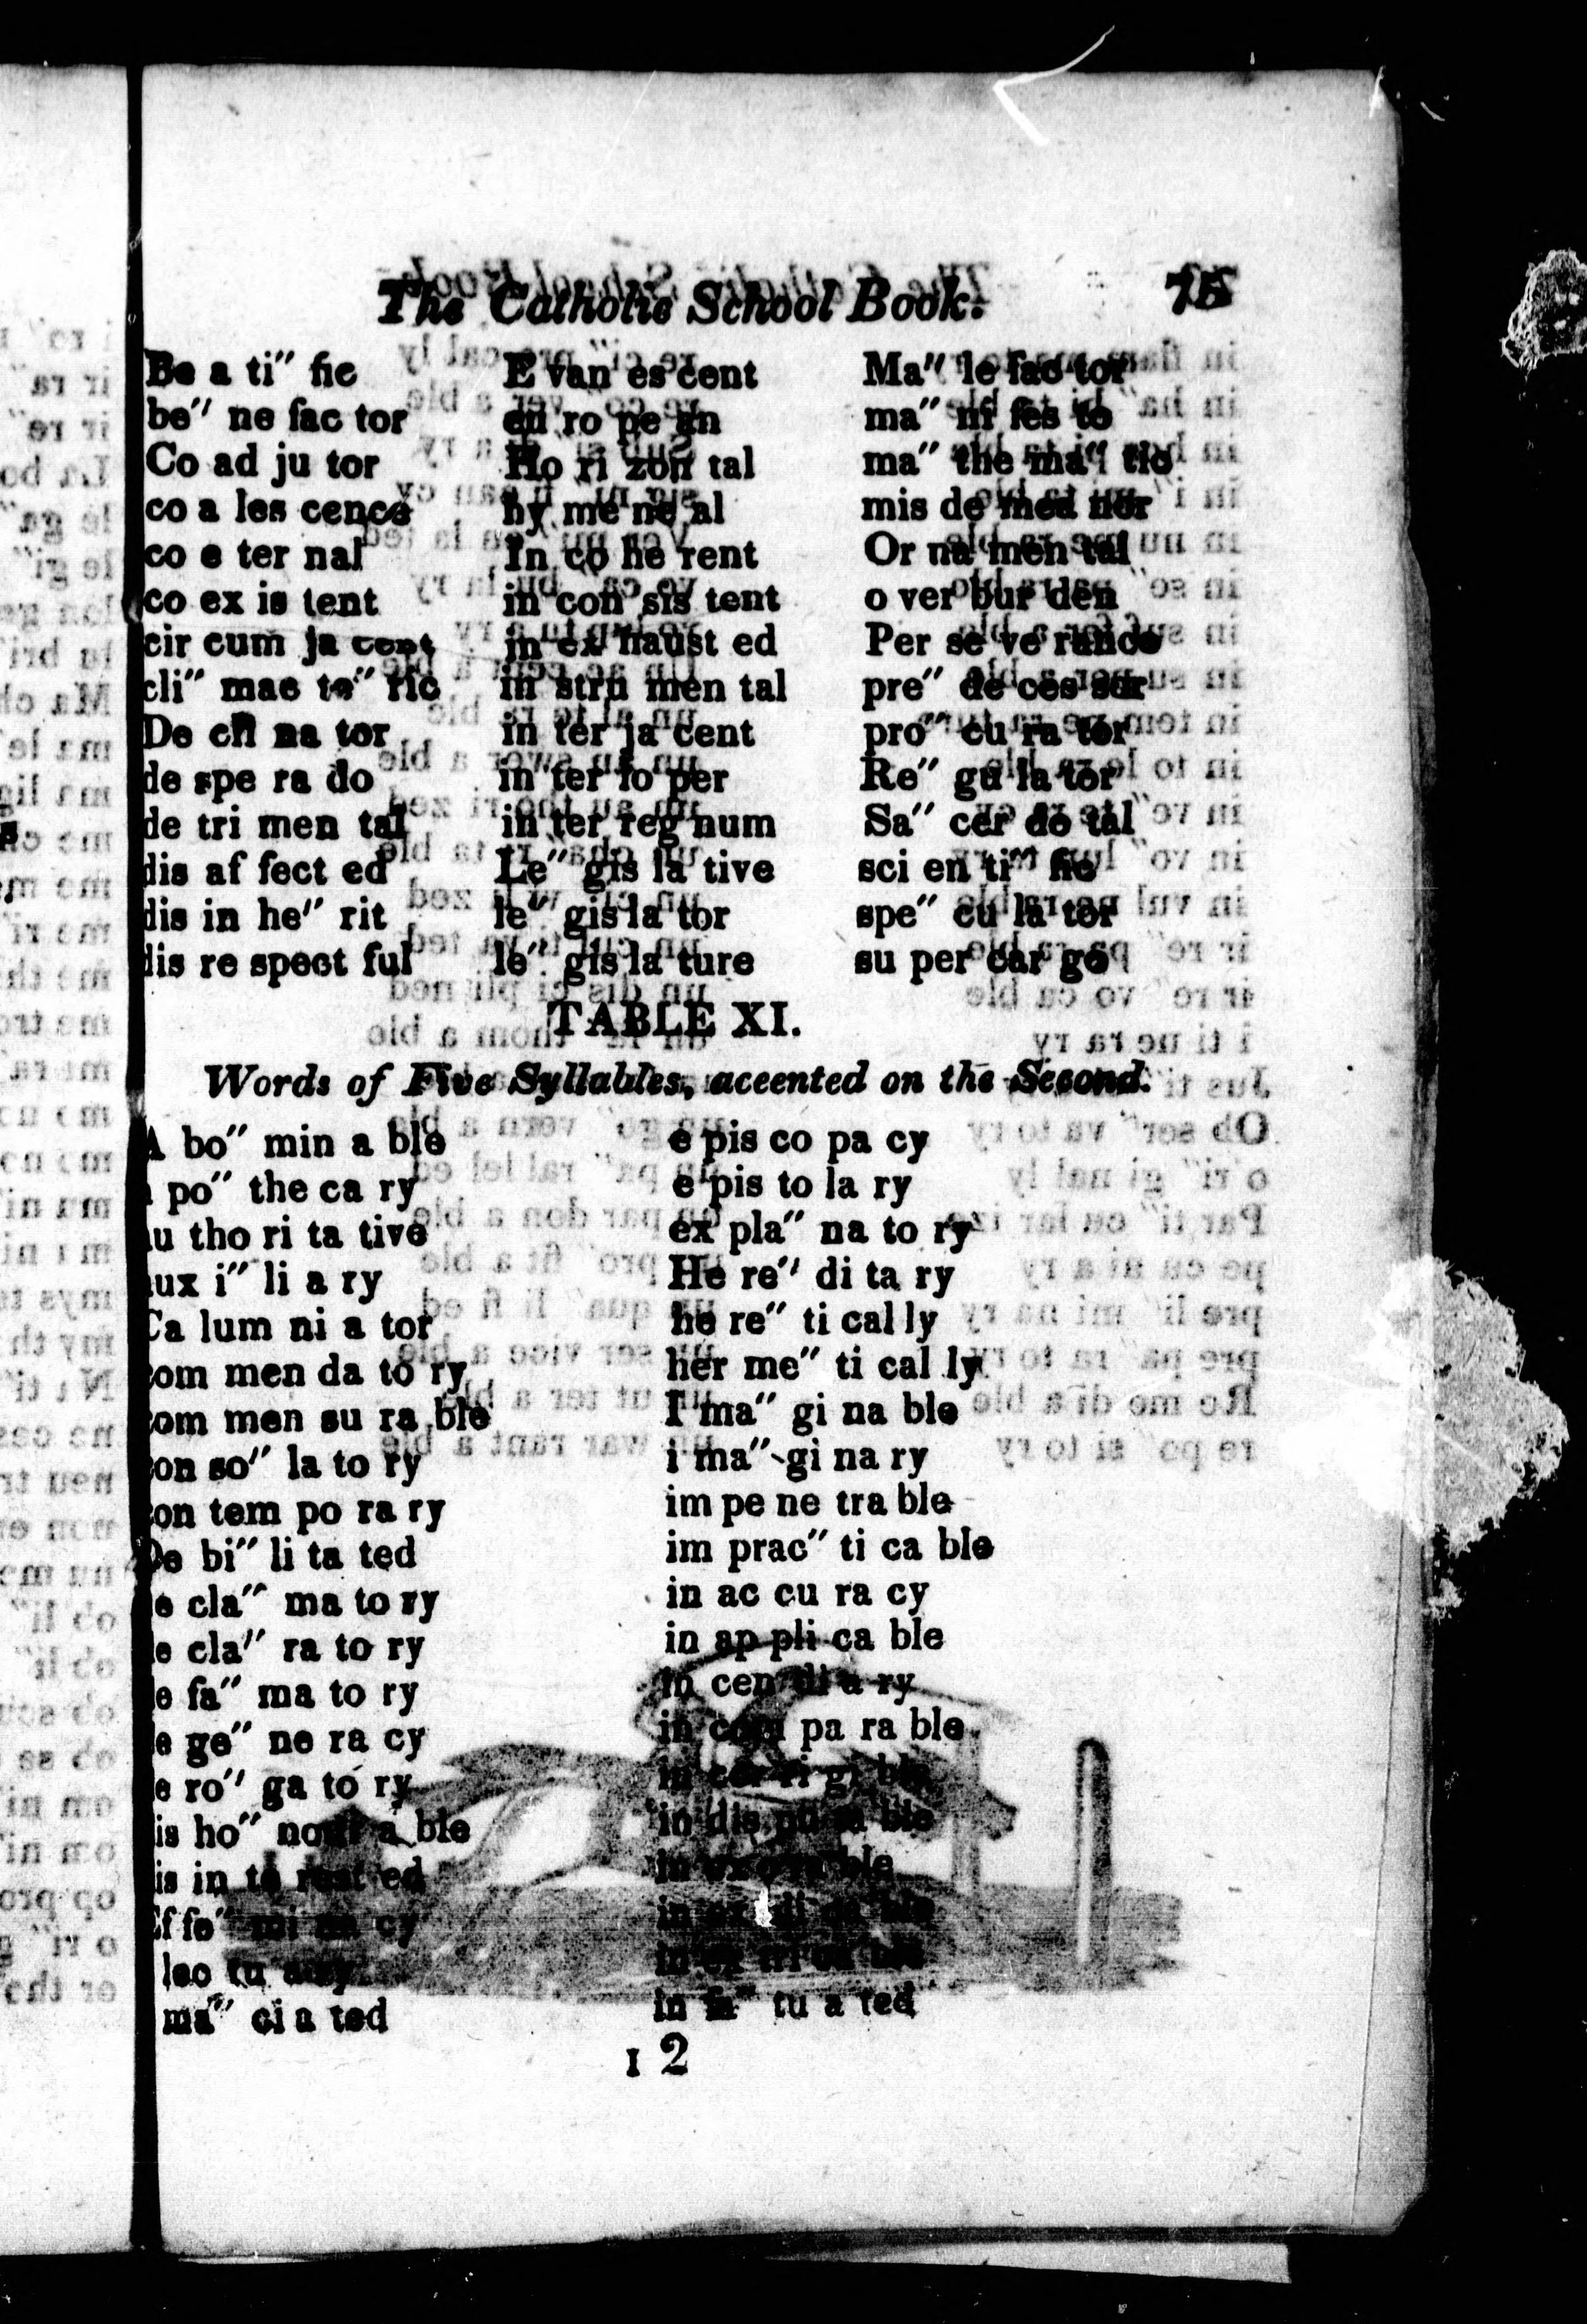 The Catholic School Book. 75
Be a ti" fic
be" ne fac tor
Co ad ju tor
co a les cence
co e ter nal
co ex is tent
cir cum ja cent
cli" mac te" ric
De cli na tor
de spe ra do
de tri men tal
dis af fect ed
dis in he" rit
dis re spect ful
E van es cent
eu ro pe an
Ho ri zon tal
hy me ne al
In co he rent
in con sis tent
in ex haust ed
in stru men tal
in ter ja cent
in ter lo per
in ter reg num
Le" gis la tive
le" gis la tor
le" gis la ture
Ma" le fac tor
ma" ni fes to
ma" the ma" tic
mis de mea nor
Or na men tal
o ver bur den
Per se ve rance
pre" de ces sor
pro" cu ra tor
Re" gu la tor
Sa" cer do tal
sci en ti" fic
spe" cu la tor
su per car go
TABLE XI.
Words of Five Syllables, aceented on the Second.
A bo" min a ble
po" the ca ry
u tho ri ta tive
ux i" li a ry
Ca lum ni a tor
om men da to ry
om men su ra ble
on so" la to ry
on tem po ra ry
De bi" li ta ted
e cla" ma to ry
e cla" ra to ry
e fa" ma to ry
e ge" ne ra cy
e ro" ga to ry
is ho" nour a ble
is in te rest ed
Ef fe" mi na cy
lec tu a ry
ma" ci a ted
e pis co pa cy
e pis to la ry
ex pla" na to ry
He re" di ta ry
he re" ti cal ly
her me" ti cal ly
I ma" gi na ble
i ma" gi na ry
im pe ne tra ble
im prac" ti ca ble
in ac cu ra cy
in ap pli ca ble
in cen di a ry
in com pa ra ble
in cor ri gi ble
in dis pu ta ble
in ex o ra ble
in
in ex tri ca ble
in fa" tu a ted
I 2